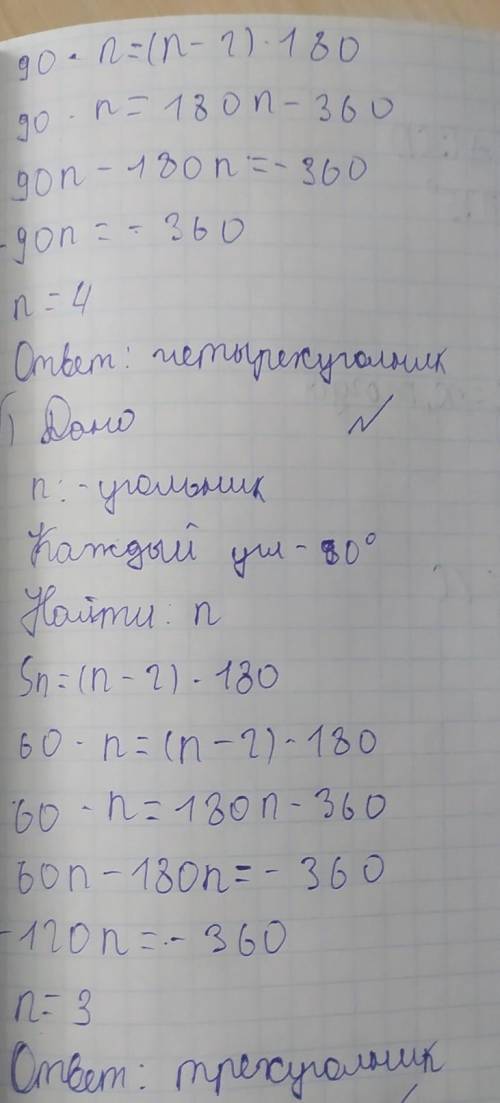 90 · n = (n - 2) · 180
90 · n = 180n - 360
90n - 180n = - 360
-90n = - 360
n = 4
Ответ: четырехугольник
б) Дано
n: - угольник
Каждый угл - 60°
Найти: n
Sn = (n - 2) · 180
60 · n = (n - 2) · 180
60 · n = 180n - 360
60n - 180n = - 360
-120n = - 360
n = 3
Ответ: трехугольник